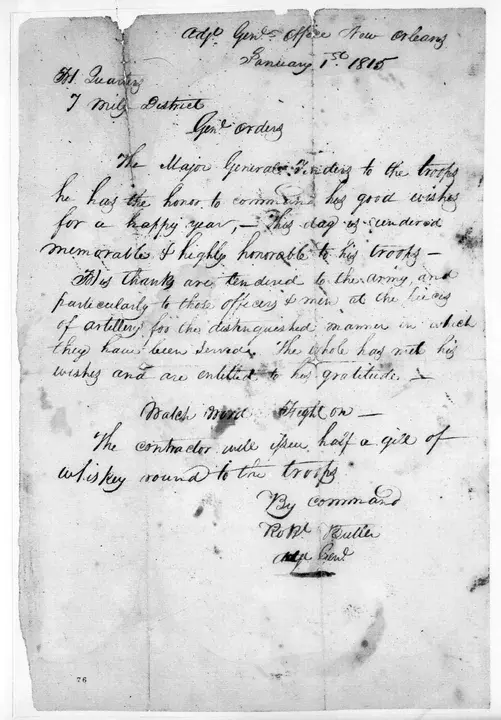 Adjt Genls Office New Orleans
January 1st 1815
Hd Quarters
7 Mily District
Genl Orders
The Major General Tenders to the troops
he has the honor to command his good wishes
for a happy year, — This day is rendered
memorable & highly honorable to his troops —
His thanks are tendered to the army, and
particularly to those officers & men at the pieces
of artillery for the distinguished manner in which
they have been served. The whole has met his
wishes and are entitled to his gratitude. —
Watch Word Fight on —
The contractor will issue half a gill of
whiskey round to the troops
By command
Robt Butler
Adjt Genl
76